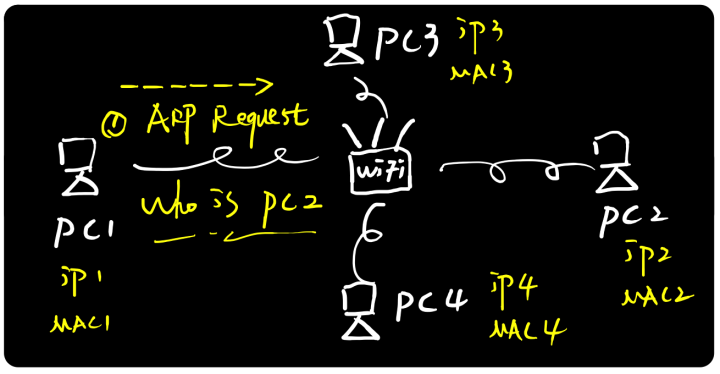 PC3 iP3
MAC3
① ARP Request
WiFi
who is PC2
PC1
iP1
MAC1
PC2
iP2
MAC2
PC4 iP4
MAC4